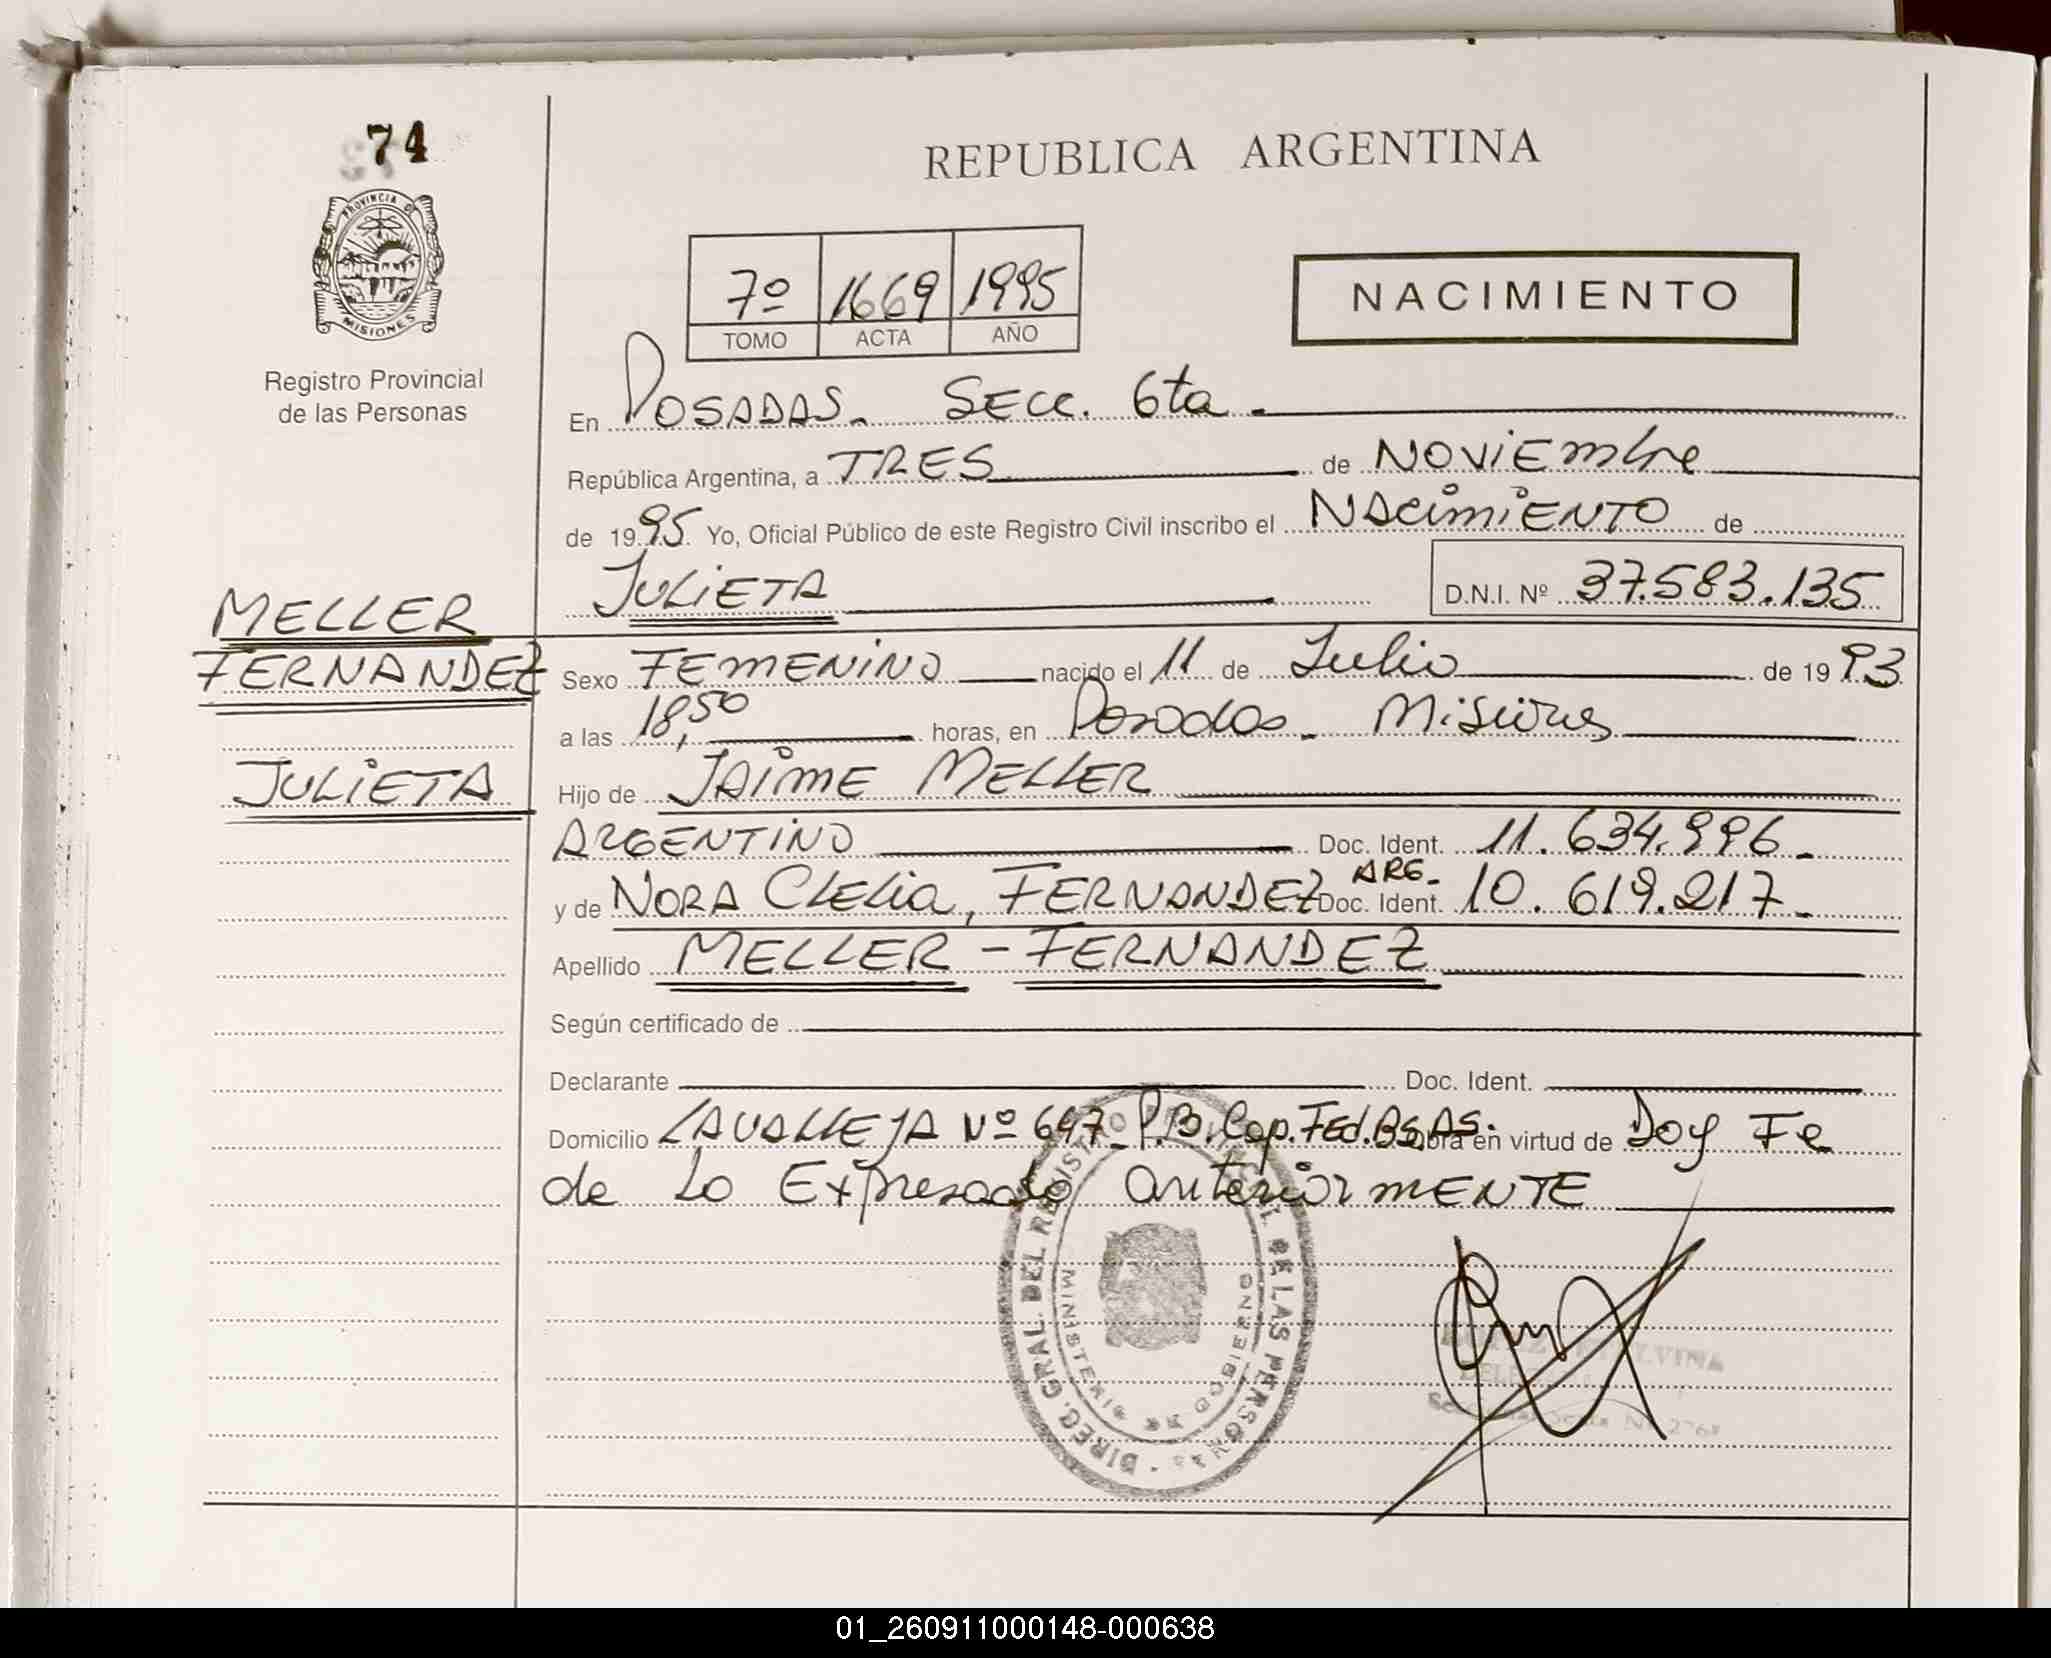 74
REPUBLICA ARGENTINA
PROVINCIA DE
MISIONES
Registro Provincial
de las Personas
7º 1669 1995
TOMO ACTA AÑO
NACIMIENTO
En POSADAS. SECC. 6ta.
República Argentina, a TRES de NOVIEMbre
de 1995 Yo, Oficial Público de este Registro Civil inscribo el NACIMIENTO de
JULIETA D.N.I. Nº 37.583.135
MELLER
FERNANDEZ
JULIETA
Sexo FEMENINO nacido el 11 de Julio de 1993
a las 18,50 horas, en Posadas - Misiones
Hijo de JAIME MELLER
ARGENTINO Doc. Ident. 11.634.996-
y de NORA CLELia, FERNANDEZ ARG. Doc. Ident. 10.619.217-
Apellido MELLER - FERNANDEZ
Según certificado de
Declarante Doc. Ident.
Domicilio LAVALLEJA Nº 647 P.B. Cap. Fed. BS AS. Obra en virtud de Doy Fe
de Lo Expresado anteriorMENTE
DIREC. GRAL. DEL REGISTRO PROVINCIAL DE LAS PERSONAS
MINISTERIO DE GOBIERNO
01_260911000148-000638